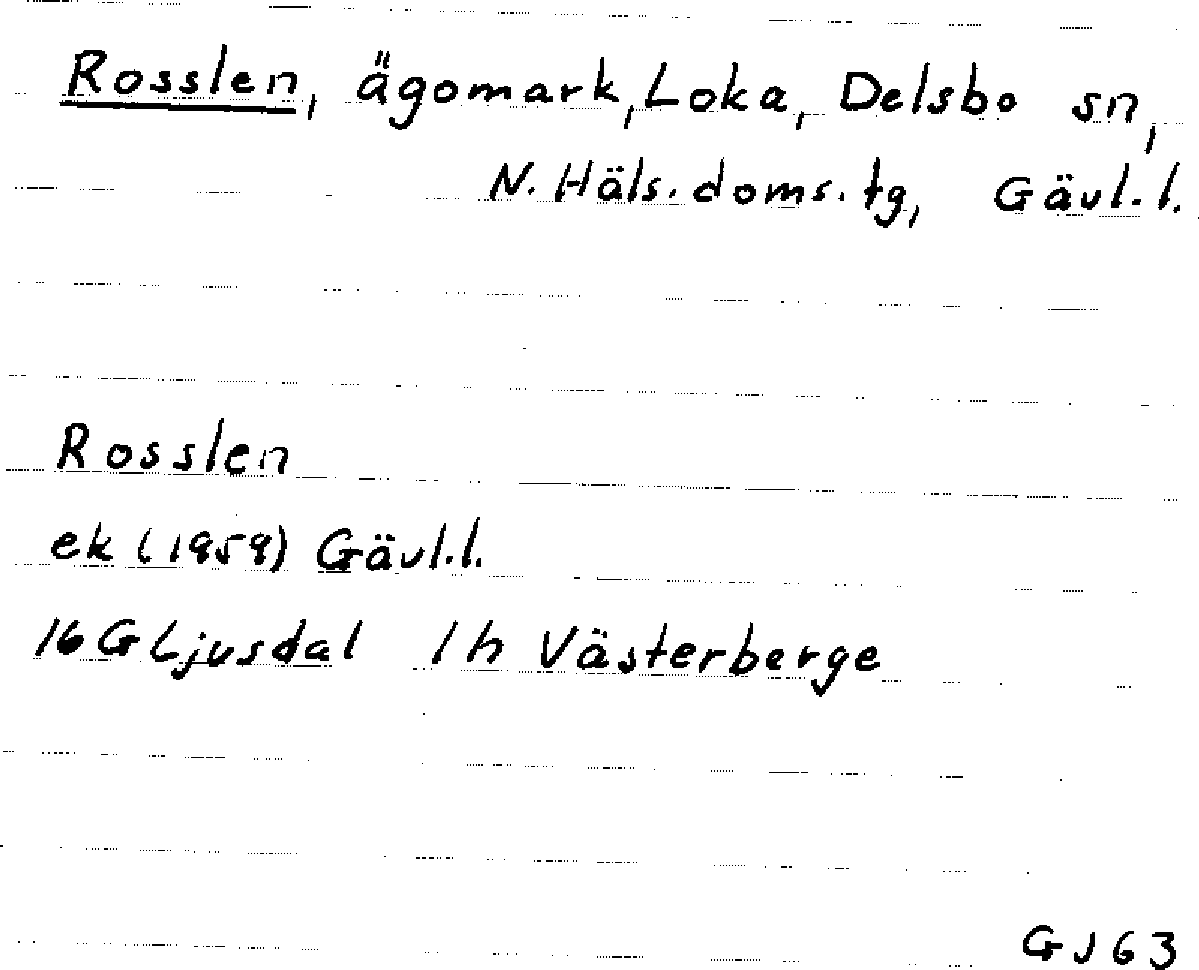 Rosslen, ägomark, Loka, Delsbo sn,
N. Häls. doms. tg, Gävl. l.
Rosslen
ek (1959) Gävl. l.
16 G Ljusdal 1 h Västerberge
GJ 63